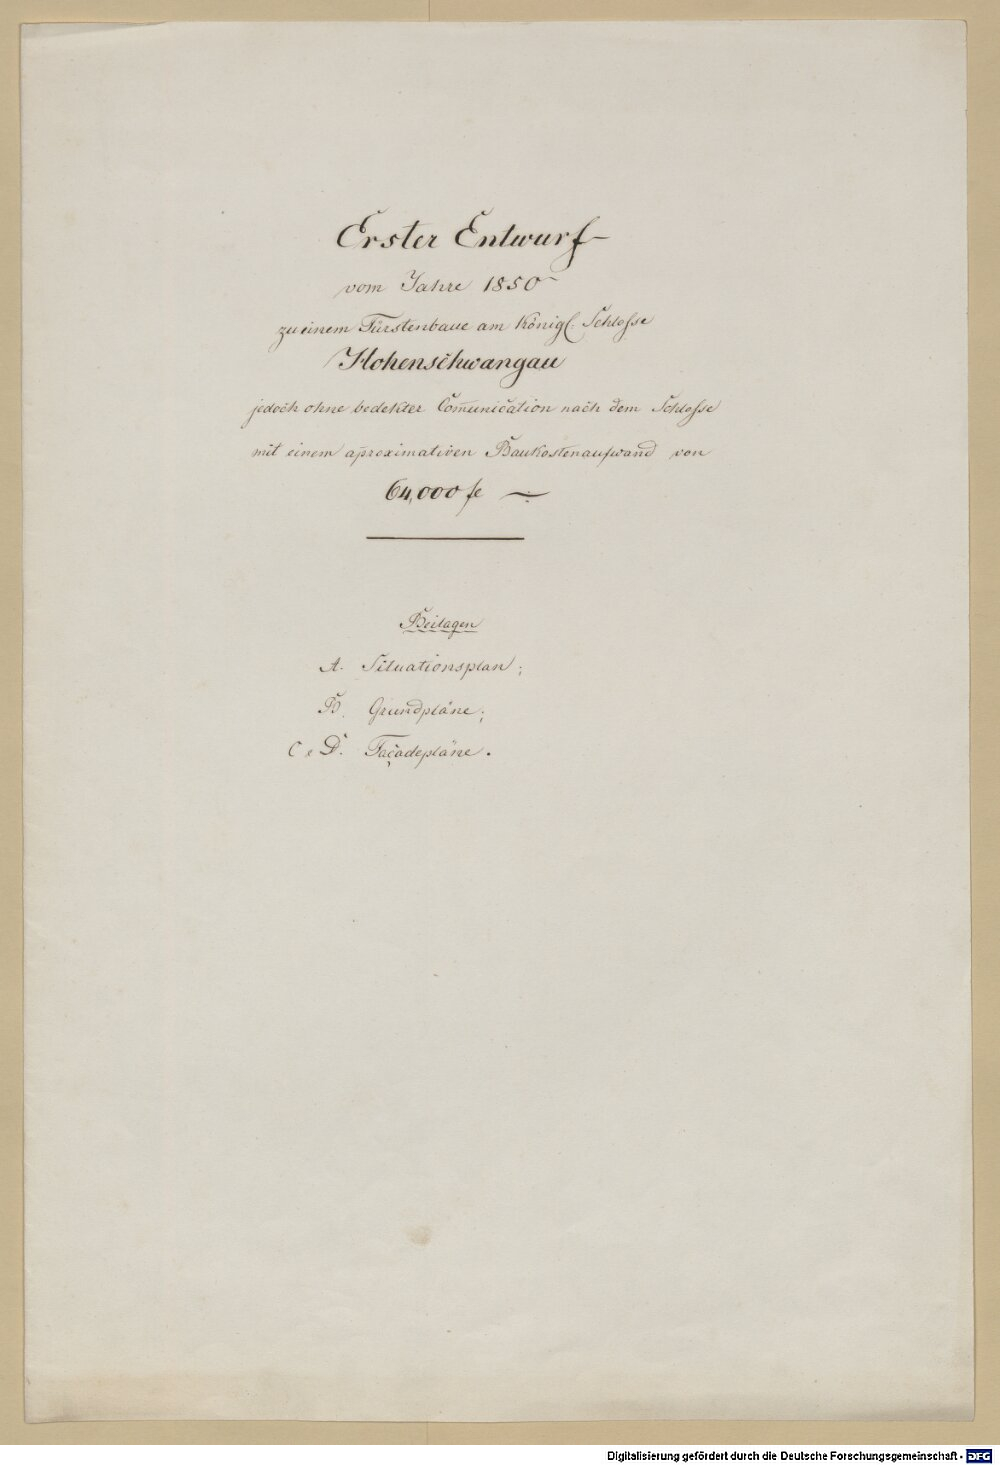 Erster Entwurf
vom Jahre 1850
zu einem Fürstenbaue am Königl. Schloße
Hohenschwangau
jedoch ohne bedekter Com̄unication nach dem Schloße
mit einem ap̄roximativen Baukostenaufwand von
64,000 fl
Beilagen
A. Situationsplan;
B. Grundpläne;
C & D. Façadepläne.
Digitalisierung gefördert durch die Deutsche Forschungsgemeinschaft - DFG